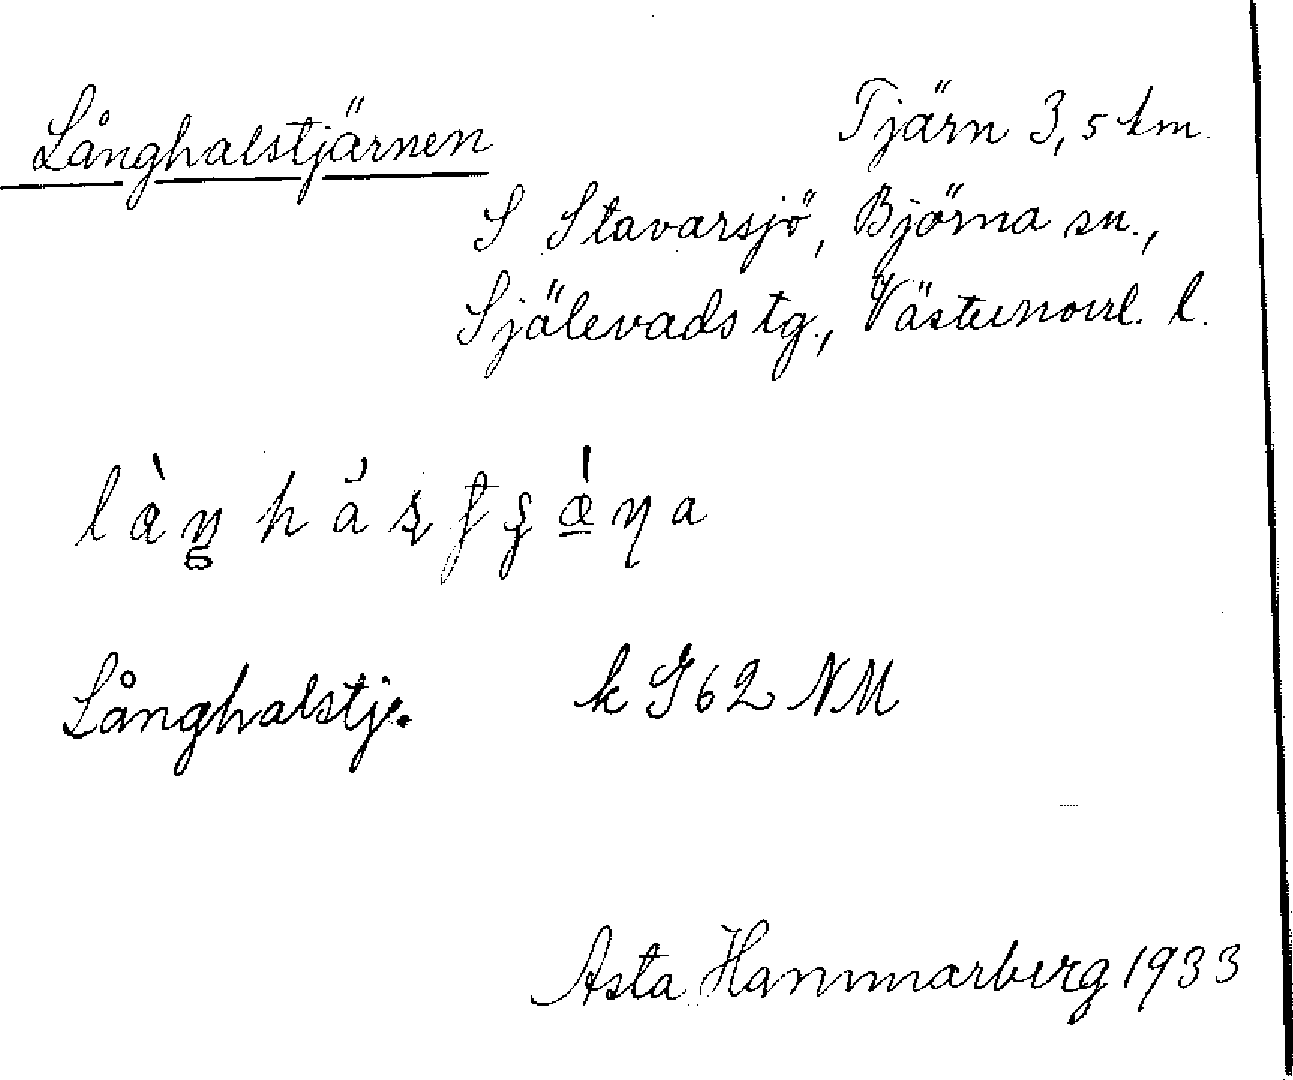 Långhalstjärnen
Tjärn 3,5 km
S Stavarsjö, Björna sn.,
Själevads tg., Västernorrl. l.
Långhalstj. k G62 NM
Asta Hammarberg 1933